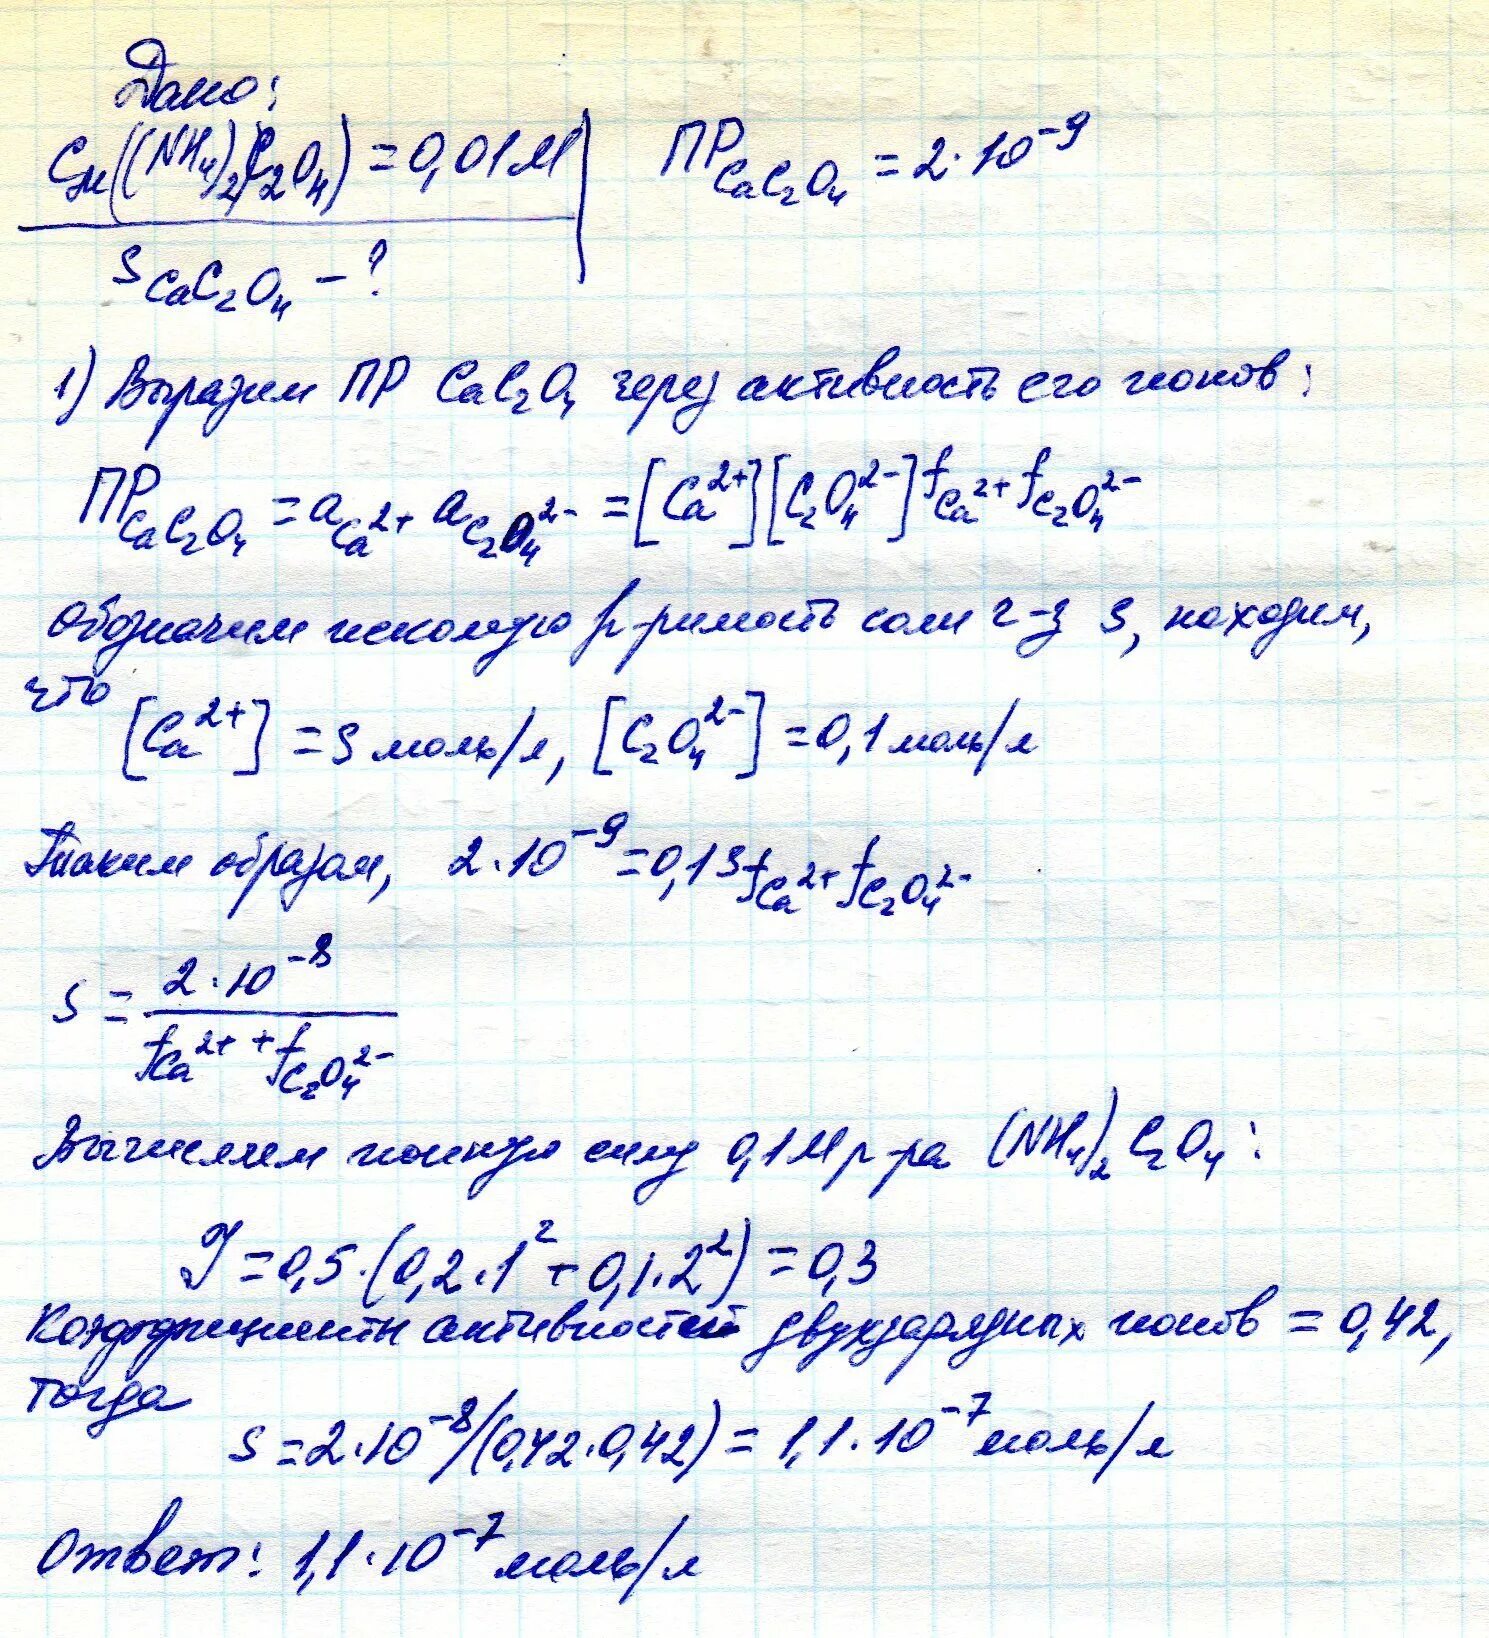 Дано:
Cм((NH₄)₂C₂O₄) = 0,01М ПР CaC₂O₄ = 2·10⁻⁹
S CaC₂O₄ – ?
1) Выразим ПР CaC₂O₄ через активность его ионов:
ПР CaC₂O₄ = a Ca²⁺ a C₂O₄²⁻ = [Ca²⁺][C₂O₄²⁻] f Ca²⁺ f C₂O₄²⁻
Обозначим искомую р-римость соли ч-з S, находим,
что
[Ca²⁺] = S моль/л, [C₂O₄²⁻] = 0,1 моль/л
Таким образом, 2·10⁻⁹ = 0,1 S f Ca²⁺ f C₂O₄²⁻
S = 2·10⁻⁸ / f Ca²⁺ + f C₂O₄²⁻
Вычисляем ионную силу 0,1М р-ра (NH₄)₂C₂O₄:
J = 0,5·(0,2·1² + 0,1·2²) = 0,3
Коэффициенты активностей двухзарядных ионов = 0,42,
тогда
S = 2·10⁻⁸/(0,42·0,42) = 1,1·10⁻⁷ моль/л
Ответ: 1,1·10⁻⁷ моль/л